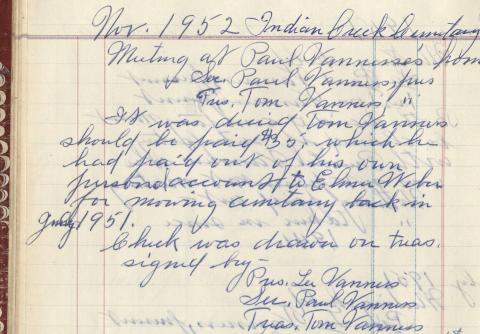 Nov. 1952 Indian Creek Cemetary
Meeting at Paul Vannesses home
Sec. Paul Vanness, pres
Tres. Tom Vanness, "
It was decied Tom Vanness
should be paid $35, which he
had paid out of his own
personal account to Elmer Weber
for mowing cemetary back in
July 1951.
Check was drawn on treas.
signed by -
Pres. Lee Vanness
Sec. Paul Vanness
Treas. Tom Vanness